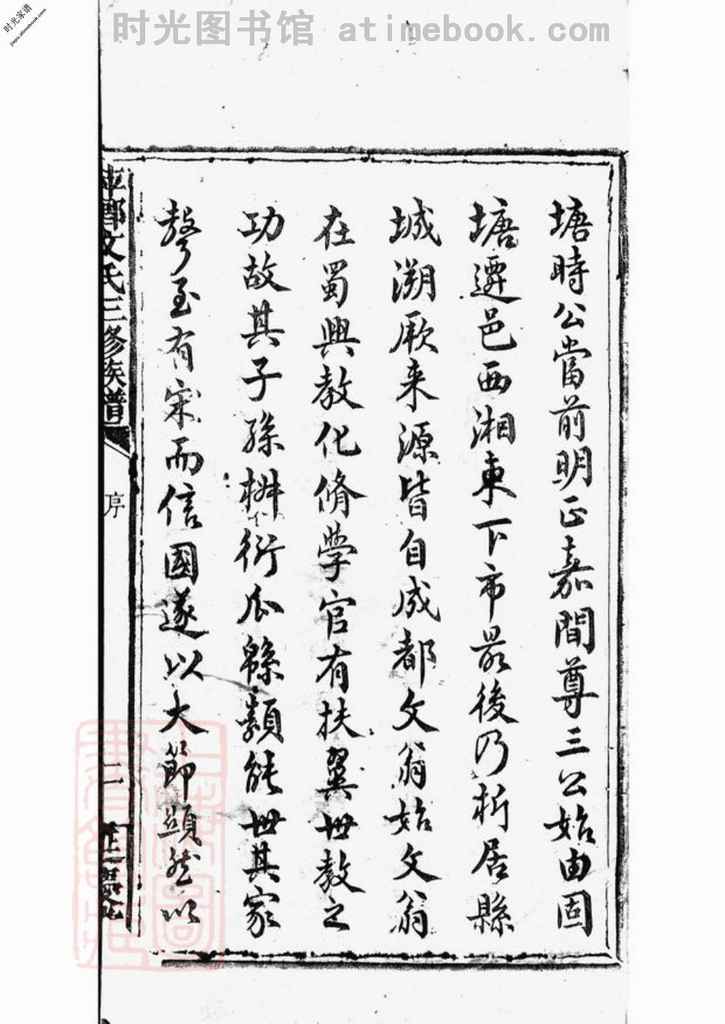 时光图书馆 atimebook.com
时光家谱
塘時公當前明正嘉間尊三公始由固
塘遷邑西湘東下市最後乃析居縣
城溯厥来源皆自成都文翁始文翁
在蜀興教化脩学官有扶翼世教之
功故其子孫椒衍瓜緜類能世其家
聲至有宋而信國遂以大節顯然以
萍鄉文氏三修族譜
序
二